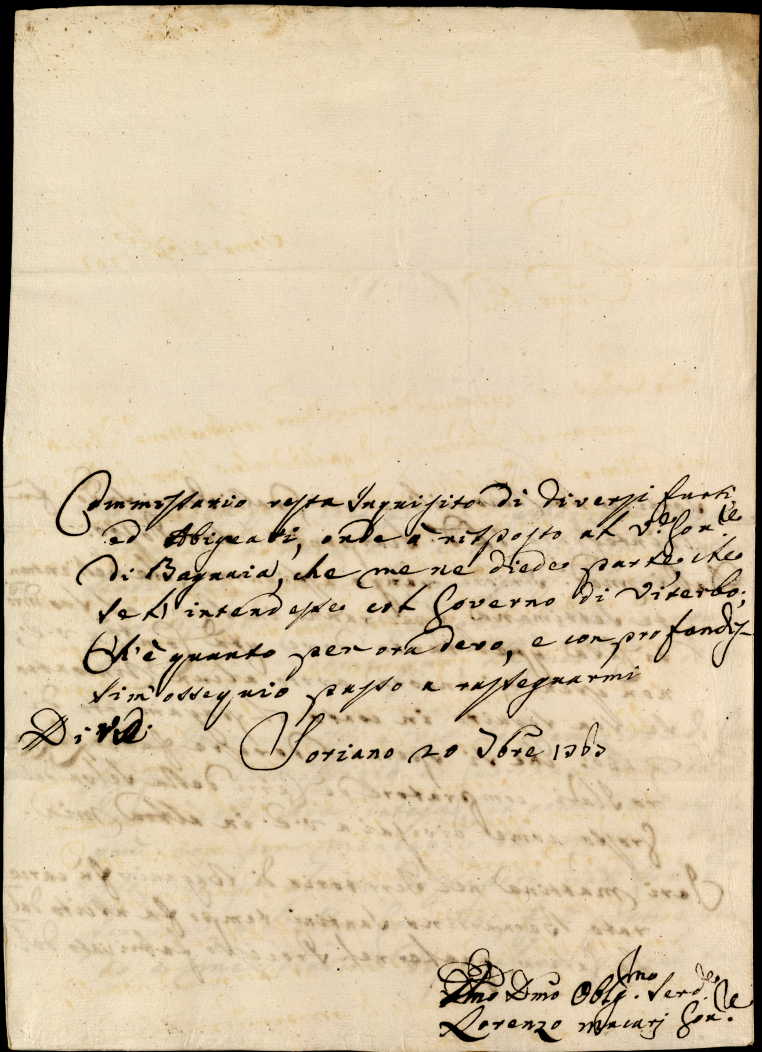 Commissario resta Inquisito di diversi furti,
ed Abigeati, onde ò risposto al V.e Gov.re
di Bagnaia, che me ne diede parte, che
se l'intendesse col Governo di Viterbo;
Ch'è quanto per ora devo, e con profondis-
sim'ossequio passo a rassegnarmi
Di V.E.
Soriano 20 7bre 1767
Dmo Obbl.mo Serv.re
Lorenzo Macarj Gov.re